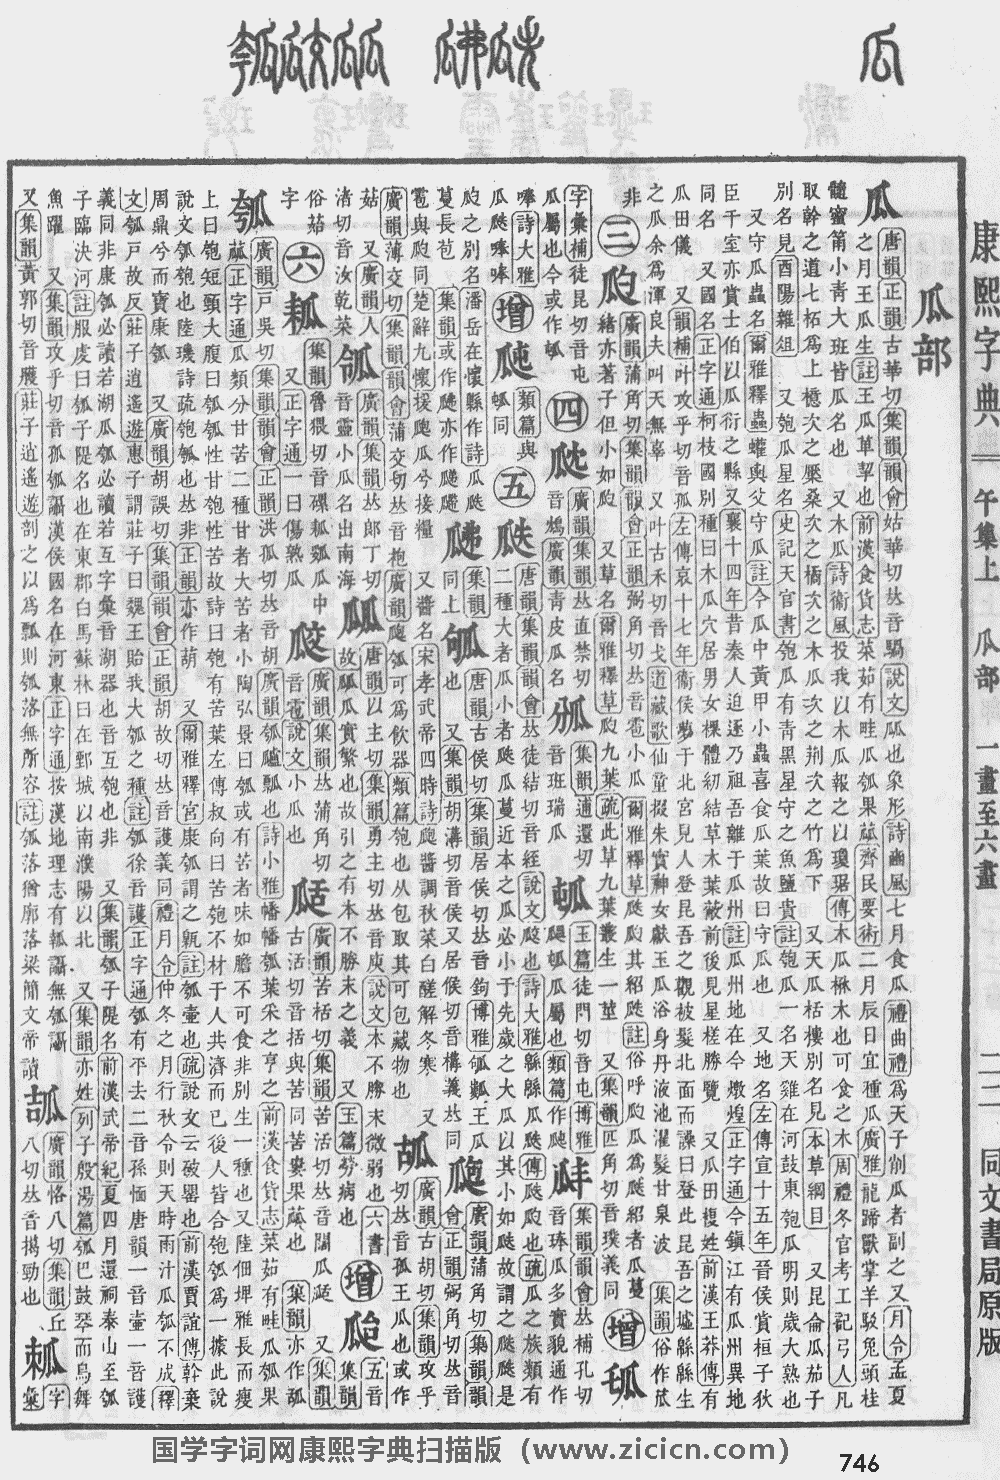 康熙字典 午集上 瓜部 一畫至六畫 二二 同文書局原版
瓜部
瓜 唐韻正韻古華切集韻韻會姑華切𠀤音騧說文㼌也象形詩豳風七月食瓜禮曲禮爲天子削瓜者副之又月令孟夏
之月王瓜生註王瓜草挈也前漢食貨志菜茹有畦瓜瓠果蓏齊民要術二月辰日宜種瓜廣雅龍蹄獸掌羊駮兔頭桂
髓蜜筩小靑大班皆瓜名也 又木瓜詩衞風投我以木瓜報之以瓊琚傳木瓜楙木也可食之木周禮冬官考工記弓人凡
取幹之道七柘爲上檍次之檿桑次之橘次之木瓜次之荆次之竹爲下 又天瓜栝樓別名見本草綱目 又昆侖瓜茄子
別名見酉陽雜俎 又匏瓜星名史記天官書匏瓜有靑黑星守之魚鹽貴註匏瓜一名天雞在河鼓東匏瓜明則歲大熟也
又守瓜蟲名爾雅釋蟲蠸輿父守瓜註今瓜中黃甲小蟲喜食瓜葉故曰守瓜也 又地名左傳宣十五年晉侯賞桓子狄
臣千室亦賞士伯以瓜衍之縣又襄十四年昔秦人迫逐乃祖吾離于瓜州註瓜州地在今燉煌正字通今鎭江有瓜州異地
同名 又國名正字通柯枝國別種曰木瓜穴居男女裸體紉結草木葉蔽前後見星槎勝覽 又瓜田複姓前漢王莽傳有
瓜田儀 又韻補叶攻乎切音孤左傳哀十七年衞侯夢于北宮見人登昆吾之觀被髮北面而譟曰登此昆吾之墟緜緜生
之瓜余爲渾良夫叫天無辜 又叶古禾切音戈道藏歌仙童掇朱實神女獻玉瓜浴身丹液池濯髮甘泉波 集韻俗作苽
非
三 瓝 廣韻蒲角切集韻韻會正韻弼角切𠀤音雹小瓜也爾雅釋草瓞瓝其紹瓞註俗呼瓝瓜爲瓞紹者瓜蔓
緒亦著子但小如瓝 又草名爾雅釋草瓝九葉疏此草九葉叢生一莖 又集韻匹角切音璞義同 增
字彙補徒昆切音屯
瓜屬也今或作
四 廣韻集韻𠀤直禁切
音鴆廣韻靑皮瓜名
集韻逋還切
音班瑞瓜
玉篇徒門切音屯博雅
瓜屬也類篇作
集韻韻會𠀤補孔切
音琫瓜多實貌通作
唪詩大雅
瓜瓞唪唪
增 類篇與
同
五 瓞 唐韻集韻韻會𠀤徒結切音絰說文㼎也詩大雅緜緜瓜瓞傳瓞瓝也疏瓜之族類有
二種大者瓜小者瓞瓜蔓近本之瓜必小于先歲之大瓜以其小如瓝故謂之瓞瓞是
瓝之別名潘岳在懷縣作詩瓜瓞
蔓長苞 集韻或作
集韻
同上
唐韻古侯切集韻居侯切𠀤音鉤博雅
王瓜
也 又集韻胡溝切音侯又居候切音構義𠀤同
瓟 廣韻蒲角切集韻韻
會正韻弼角切𠀤音
雹與瓝同楚辭九懷援瓟瓜兮接糧 又醬名宋孝武帝四時詩瓟醬調秋菜白醝解冬寒 又
廣韻薄交切集韻韻會蒲交切𠀤音枹廣韻瓟瓠可爲飮器類篇匏也从包取其可包藏物也
㼋 廣韻古胡切集韻攻乎
切𠀤音孤王瓜也或作
菇 又廣韻人
渚切音汝乾菜
瓴 廣韻集韻𠀤郎丁切
音靈小瓜名出南海
㼌 唐韻以主切集韻勇主切𠀤音庾說文本不勝末微弱也六書
故㼌瓜實繁也故引之有本不勝末之義 又玉篇勞病也
增 集韻
五音
俗菇
字
六 集韻魯猥切音磥瓜中
又正字通一曰傷熟瓜
㼎 廣韻集韻𠀤蒲角切
音雹說文小瓜也
廣韻苦栝切集韻苦活切𠀤音闊瓜
又集韻
古活切音括與苦同苦蔞果蓏也 集韻亦作
瓠 廣韻戸吳切集韻韻會正韻洪孤切𠀤音胡廣韻瓠𤬛瓢也詩小雅幡幡瓠葉采之亨之前漢食貨志菜茹有畦瓜瓠果
蓏正字通瓜類分甘苦二種甘者大苦者小陶弘景曰瓠或有苦者味如膽不可食非別生一種也又陸佃埤雅長而瘦
上曰瓠短頸大腹曰匏瓠性甘匏性苦故詩曰匏有苦葉左傳叔向曰苦匏不材于人共濟而已後人皆合匏瓠爲一據此說
說文瓠匏也陸璣詩疏匏瓠也𠀤非正韻亦作葫 又爾雅釋宮康瓠謂之甈註瓠壷也疏說文云破罌也前漢賈誼傳斡棄
周鼎兮而寶康瓠 又廣韻胡誤切集韻韻會正韻胡故切𠀤音護義同禮月令仲冬之月行秋令則天時雨汁瓜瓠不成釋
文瓠戸故反莊子逍遙遊惠子謂莊子曰魏王貽我大瓠之種註瓠徐音護正字通瓠有平去二音孫愐唐韻一音壷一音護
義同非康瓠必讀若湖瓜瓠必讀若互字彙音湖器也音互匏也非 又集韻瓠子隄名前漢武帝紀夏四月還祠泰山至瓠
子臨決河註服虔曰瓠子隄名也在東郡白馬蘇林曰在鄄城以南濮陽以北 又集韻亦姓列子殷湯篇瓠巴鼓琴而鳥舞
魚躍 又集韻攻乎切音孤瓠讘漢侯國名在河東正字通按漢地理志有瓡讘無瓠讘
又集韻黃郭切音臒莊子逍遙遊剖之以爲瓢則瓠落無所容註瓠落猶廓落梁簡文帝讀
廣韻恪八切集韻丘
八切𠀤音揭勁也
字
彙
国学字词网康熙字典扫描版（www.zicicn.com）
746